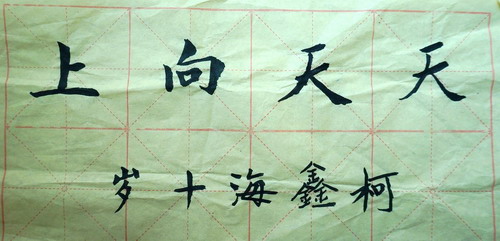 天天向上
柯鑫海十岁